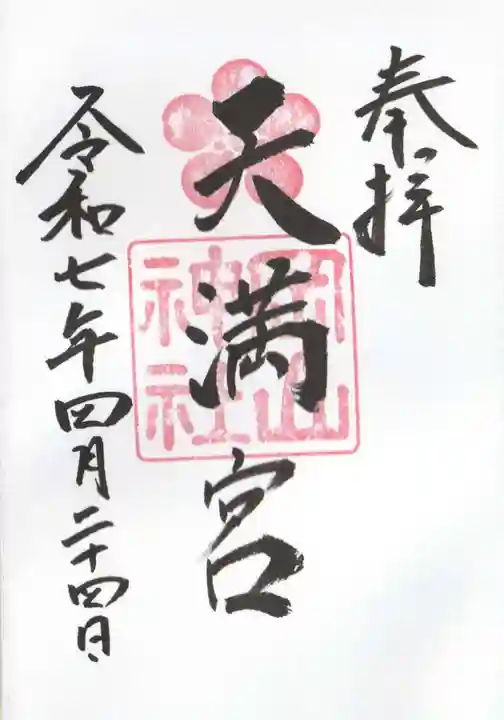 奉拝
天満宮
岡山
神社
令和七年四月二十四日